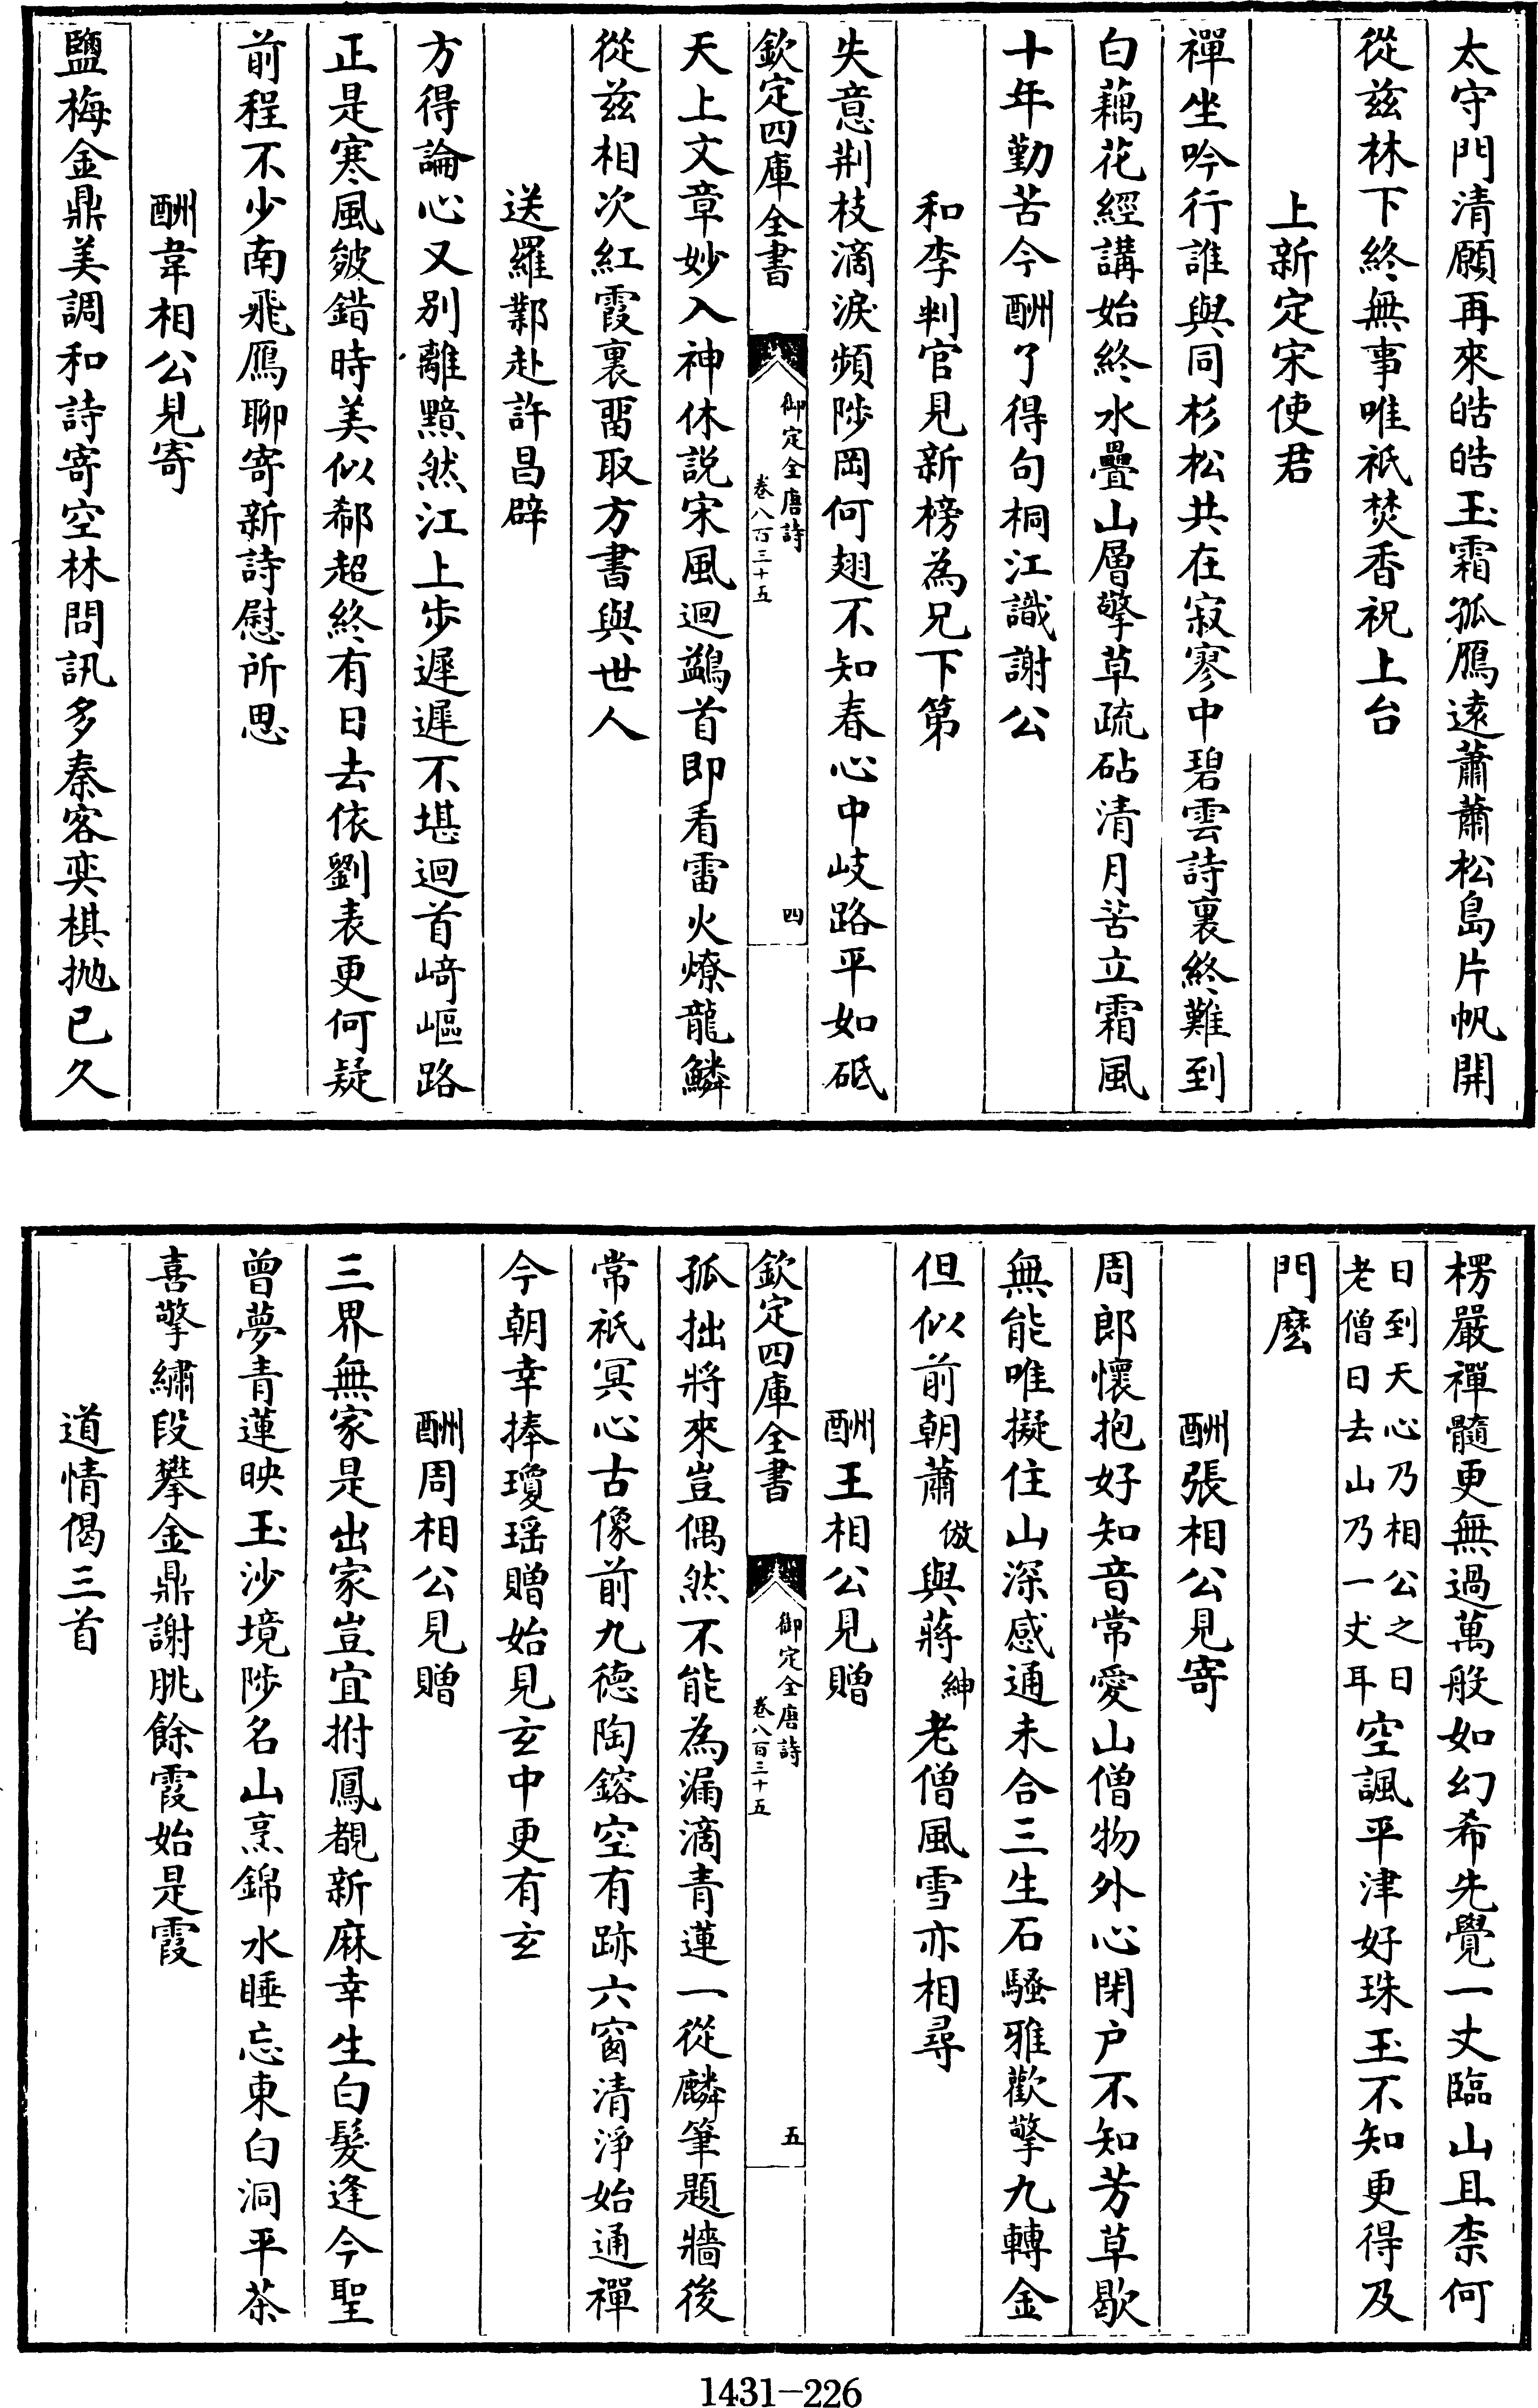 太守門清願再來皓皓玉霜孤鴈遠蕭蕭松島片帆開
從兹林下終無事唯祇焚香祝上台
上新定宋使君
禪坐吟行誰與同杉松共在寂寥中碧雲詩裏終難到
白藕花經講始終水疊山層擎草疏砧清月苦立霜風
十年勤苦今酬了得句桐江識謝公
和李判官見新榜為兄下第
失意荆枝滴淚頻陟岡何翅不知春心中岐路平如砥
欽定四庫全書
御定全唐詩
卷八百三十五
四
天上文章妙入神休説宋風迴鷁首即看雷火燎龍鱗
從兹相次紅霞裏畱取方書與世人
送羅鄴赴許昌辟
方得論心又别離黯然江上步遲遲不堪迴首崎嶇路
正是寒風皴錯時美似郗超終有日去依劉表更何疑
前程不少南飛鴈聊寄新詩慰所思
酬韋相公見寄
鹽梅金鼎美調和詩寄空林問訊多秦客奕棋抛已久
楞嚴禪髓更無過萬般如幻希先覺一丈臨山且柰何
日到天心乃相公之日
老僧日去山乃一丈耳
空諷平津好珠玉不知更得及
門麽
酬張相公見寄
周郎懷抱好知音常愛山僧物外心閉户不知芳草歇
無能唯擬住山深感通未合三生石騷雅歡擎九轉金
但似前朝蕭倣與蔣紳老僧風雪亦相尋
酬王相公見贈
欽定四庫全書
御定全唐詩
卷八百三十五
五
孤拙將來豈偶然不能為漏滴青蓮一從麟筆題牆後
常祇冥心古像前九德陶鎔空有跡六窗清淨始通禪
今朝幸捧瓊瑶贈始見玄中更有玄
酬周相公見贈
三界無家是出家豈宜拊鳳覩新麻幸生白髮逢今聖
曾夢青蓮映玉沙境陟名山烹錦水睡忘東白洞平茶
喜擎繡段攀金鼎謝朓餘霞始是霞
道情偈三首
1431-226